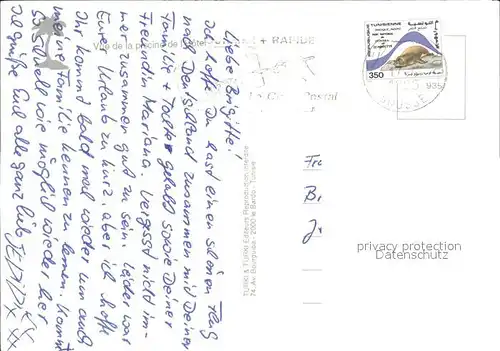 Liebe Brigitte!
Ich hoffe Du hast einen schönen Flug
nach Deutschland zusammen mit Deiner
Familie + Tochter gehabt sowie Deiner
Freundin Mariana. Vergesst nicht im-
mer zusammen gut zu sein. Leider war
Euer Urlaub zu kurz, aber ich hoffe
Ihr kommt bald mal wieder um auch
meine Familie kennen zu lernen. Kommt
so schnell wie möglich wieder her
Ich grüße Euch alle ganz lieb
Vue de la piscine de l'hôtel
+ RAPIDE
Postal
REPUBLIQUE TUNISIENNE
350
SOUSSE
TURKI & TURKI Editeurs Reproduction interdite
74, Av. Bourguiba - 2000 le Bardo - Tunisie
Fr
Br
privacy protection
Datenschutz